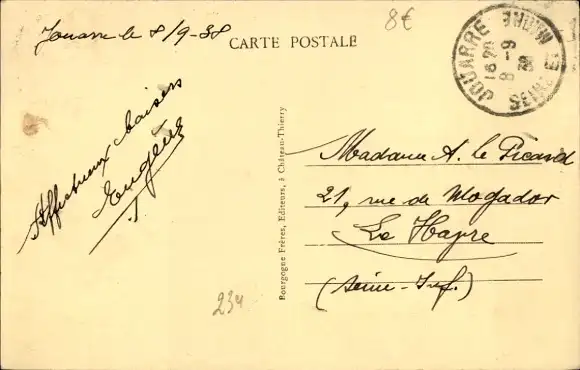 Jouarre le 8/9-38
8€
CARTE POSTALE
JOUARRE
SEINE ET MARNE
16 30
8 - 9
38
Affectueux baisers
Eugène
Bourgogne Frères, Editeurs, à Château-Thierry
Madame A. le Picard
21, rue de Mogador
Le Havre
(Seine-Inf.)
234